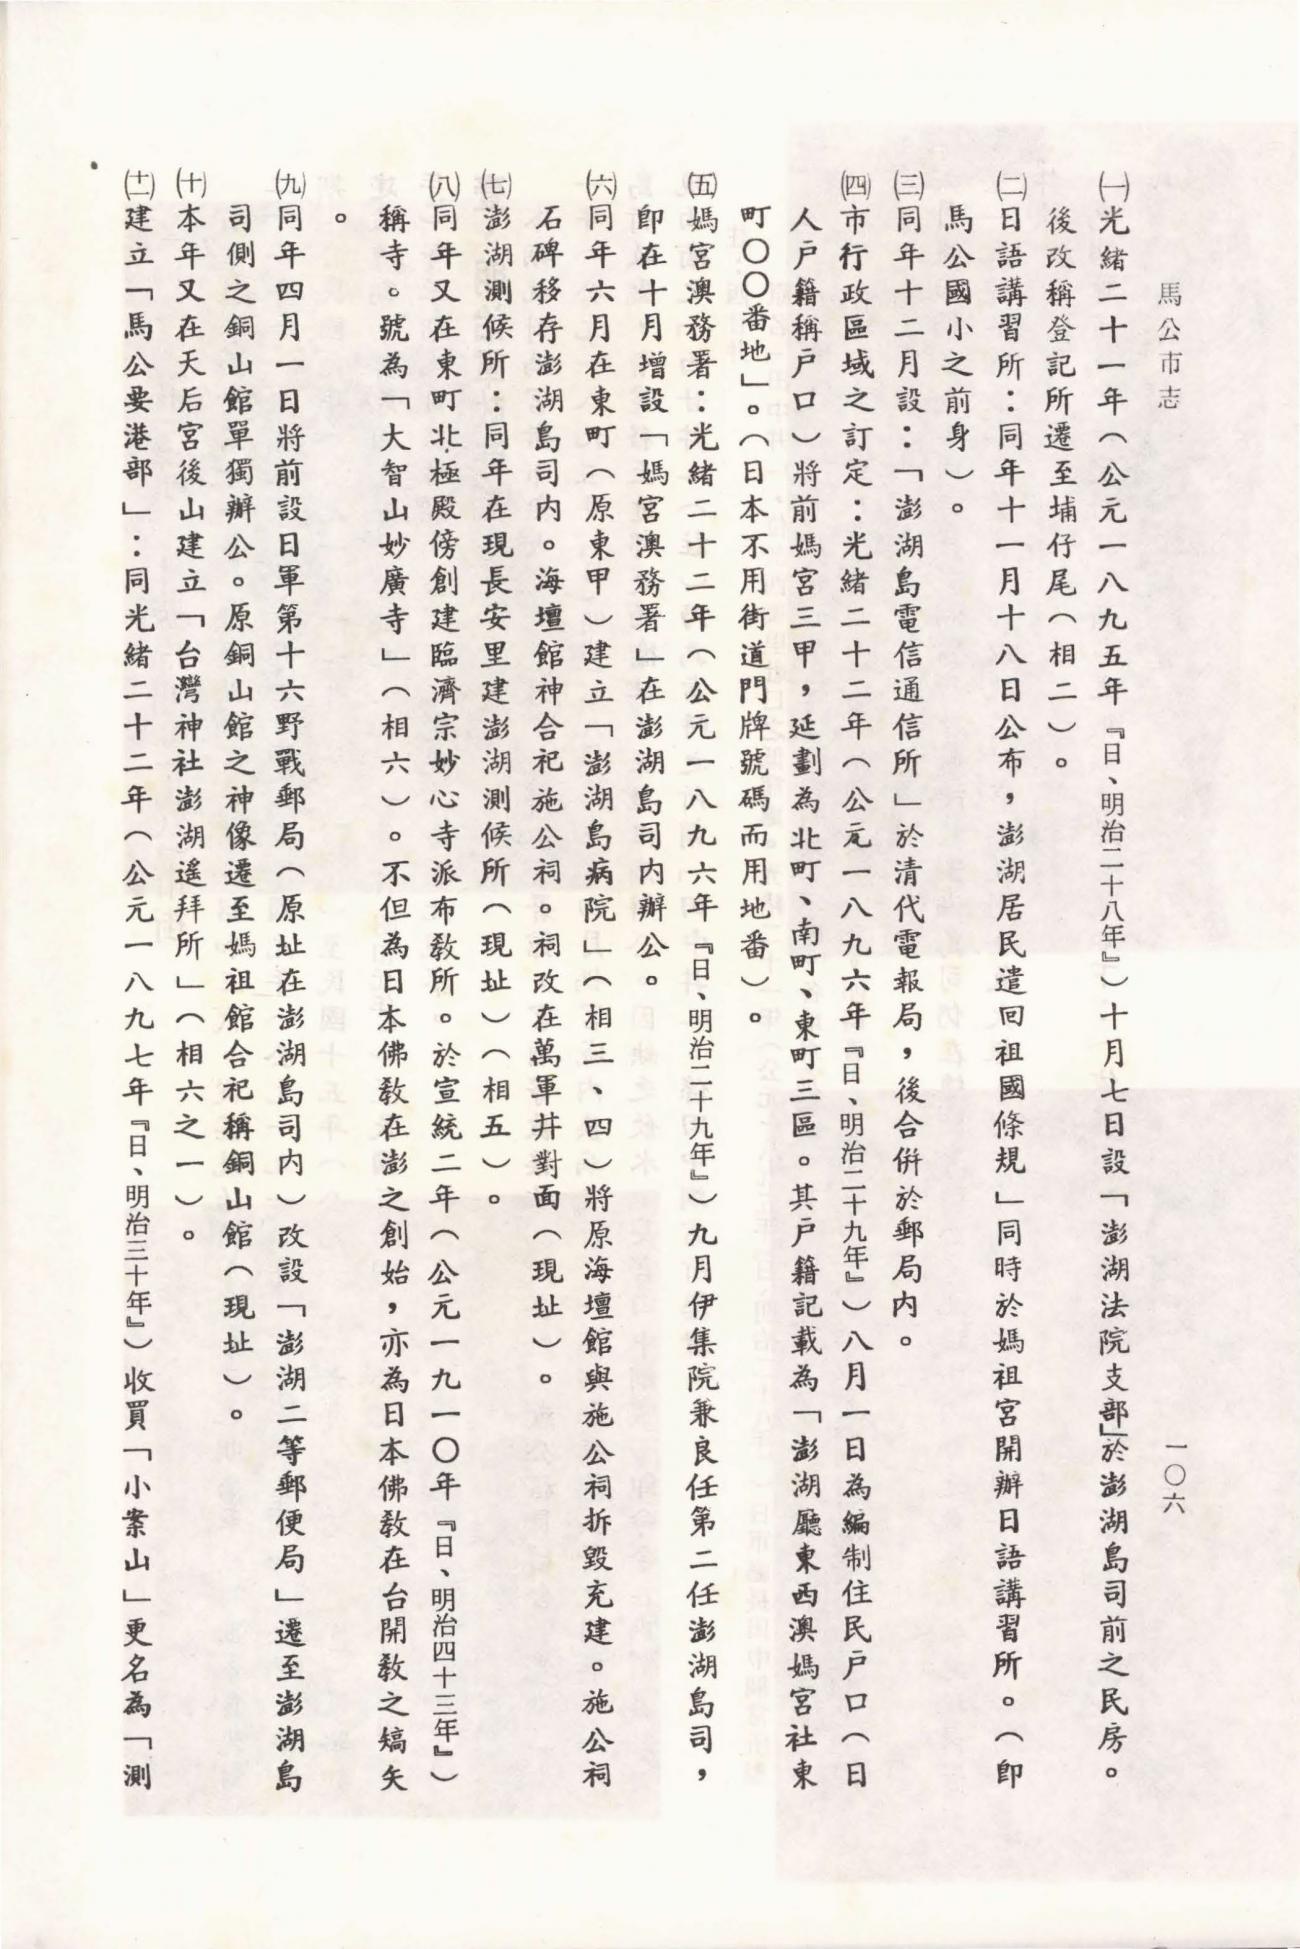 馬公市志
一〇六
㈠光緒二十一年（公元一八九五年『日、明治二十八年』）十月七日設「澎湖法院支部」於澎湖島司前之民房。
後改稱登記所遷至埔仔尾（相二）。
㈡日語講習所：同年十一月十八日公布，澎湖居民遣回祖國條規」同時於媽祖宮開辦日語講習所。（即
馬公國小之前身）。
㈢同年十二月設：「澎湖島電信通信所」於清代電報局，後合併於郵局內。
㈣市行政區域之訂定：光緒二十二年（公元一八九六年『日、明治二十九年』）八月一日為編制住民戶口（日
人戶籍稱戶口）將前媽宮三甲，延劃為北町、南町、東町三區。其戶籍記載為「澎湖廳東西澳媽宮社東
町〇〇番地」。（日本不用街道門牌號碼而用地番）。
㈤媽宮澳務署：光緒二十二年（公元一八九六年『日、明治二十九年』）九月伊集院兼良任第二任澎湖島司，
即在十月增設「媽宮澳務署」在澎湖島司內辦公。
㈥同年六月在東町（原東甲）建立「澎湖島病院」（相三、四）將原海壇館與施公祠拆毀充建。施公祠
石碑移存澎湖島司內。海壇館神合祀施公祠。祠改在萬軍井對面（現址）。
㈦澎湖測候所：同年在現長安里建澎湖測候所（現址）（相五）。
㈧同年又在東町北極殿傍創建臨濟宗妙心寺派布教所。於宣統二年（公元一九一〇年『日、明治四十三年』）
稱寺。號為「大智山妙廣寺」（相六）。不但為日本佛教在澎之創始，亦為日本佛教在台開教之矯矢
。
㈨同年四月一日將前設日軍第十六野戰郵局（原址在澎湖島司內）改設「澎湖二等郵便局」遷至澎湖島
司側之銅山館單獨辦公。原銅山館之神像遷至媽祖館合祀稱銅山館（現址）。
㈩本年又在天后宮後山建立「台灣神社澎湖遙拜所」（相六之一）。
(十一)建立「馬公要港部」：同光緒二十二年（公元一八九七年『日、明治三十年』）收買「小案山」更名為「測